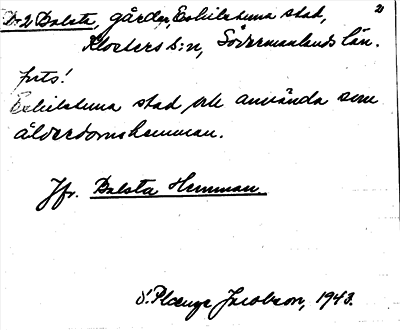 D. 2 Balsta, gårder, Eskilstuna stad, 2
Klosters s:n, Södermanlands län.
Eskilstuna stad och använda som
ålderdomshemman.
Jfr. Balsta Hemman
Jacobson, 1943.